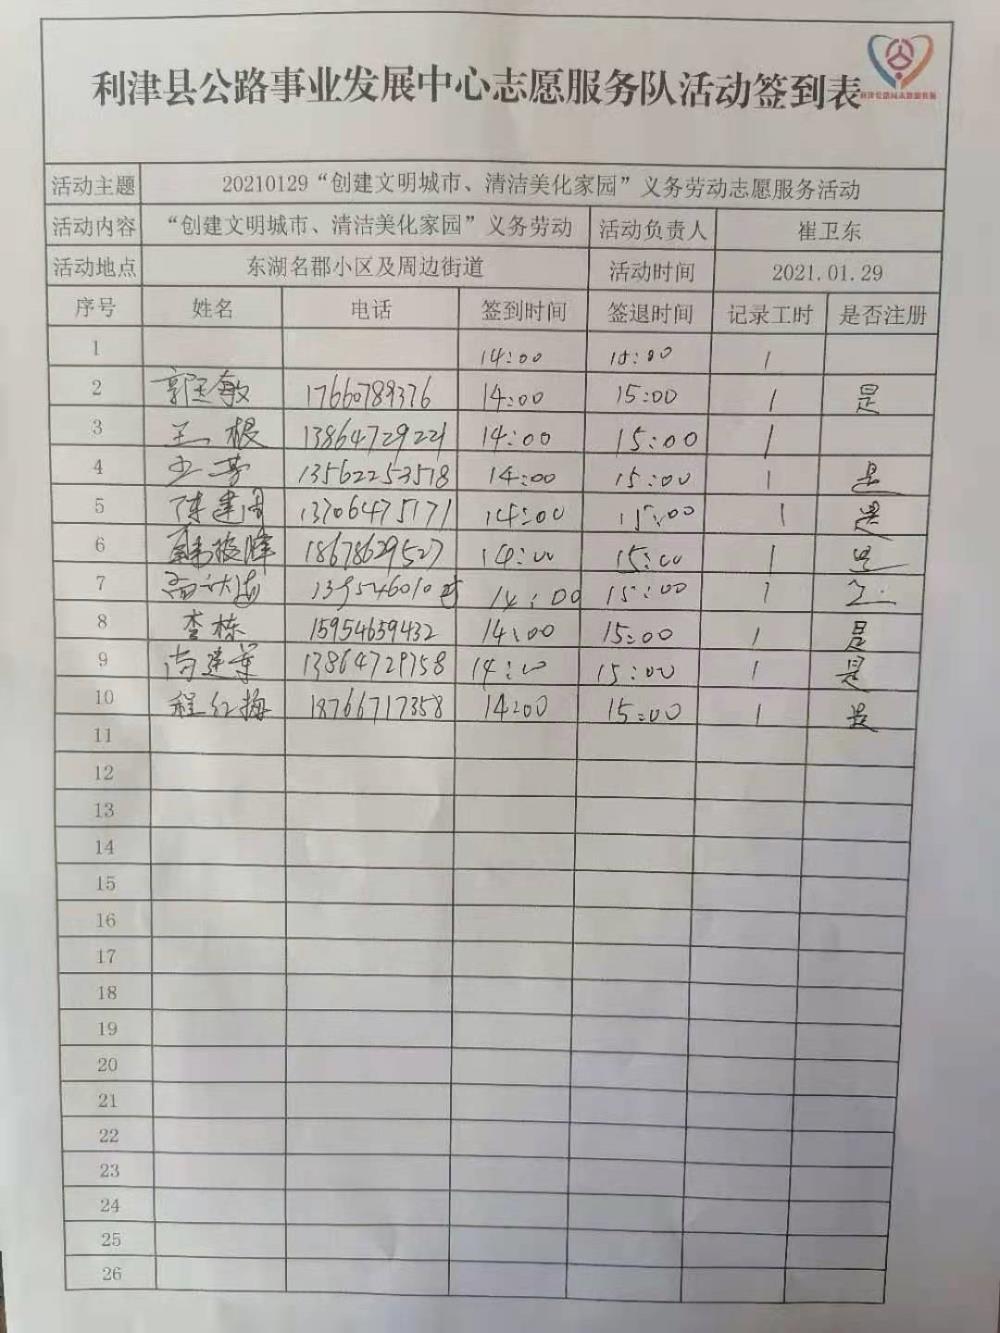 利津县公路事业发展中心志愿服务队活动签到表
活动主题 20210129“创建文明城市、清洁美化家园”义务劳动志愿服务活动
活动内容 “创建文明城市、清洁美化家园”义务劳动 活动负责人 崔卫东
活动地点 东湖名郡小区及周边街道 活动时间 2021.01.29
序号 姓名 电话 签到时间 签退时间 记录工时 是否注册
1 14:00 15:00 1
2 17660789376 14:00 15:00 1 是
3 王根 13864729221 14:00 15:00 1
4 13562253518 14:00 15:00 1 是
5 陈建国 13706475171 14:00 15:00 1 是
6 18678629527 14:00 15:00 1 是
7 14:00 15:00 1
8 李栋 15954659432 14:00 15:00 1 是
9 尚建业 13864729758 14:00 15:00 1 是
10 程红梅 18766717358 14:00 15:00 1 是
11
12
13
14
15
16
17
18
19
20
21
22
23
24
25
26